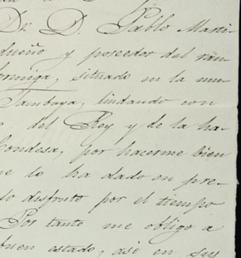 Dr. D. Pablo Marti-
dueño y poseedor del ran-
ormiga, situado en la mu-
Tambaya, lindando con
del Rey y de la ha-
Condesa, por hacerme bien
me lo ha dado en pre-
lo disfruto por el tiempo
Por tanto me obligo a
buen estado, así en sus